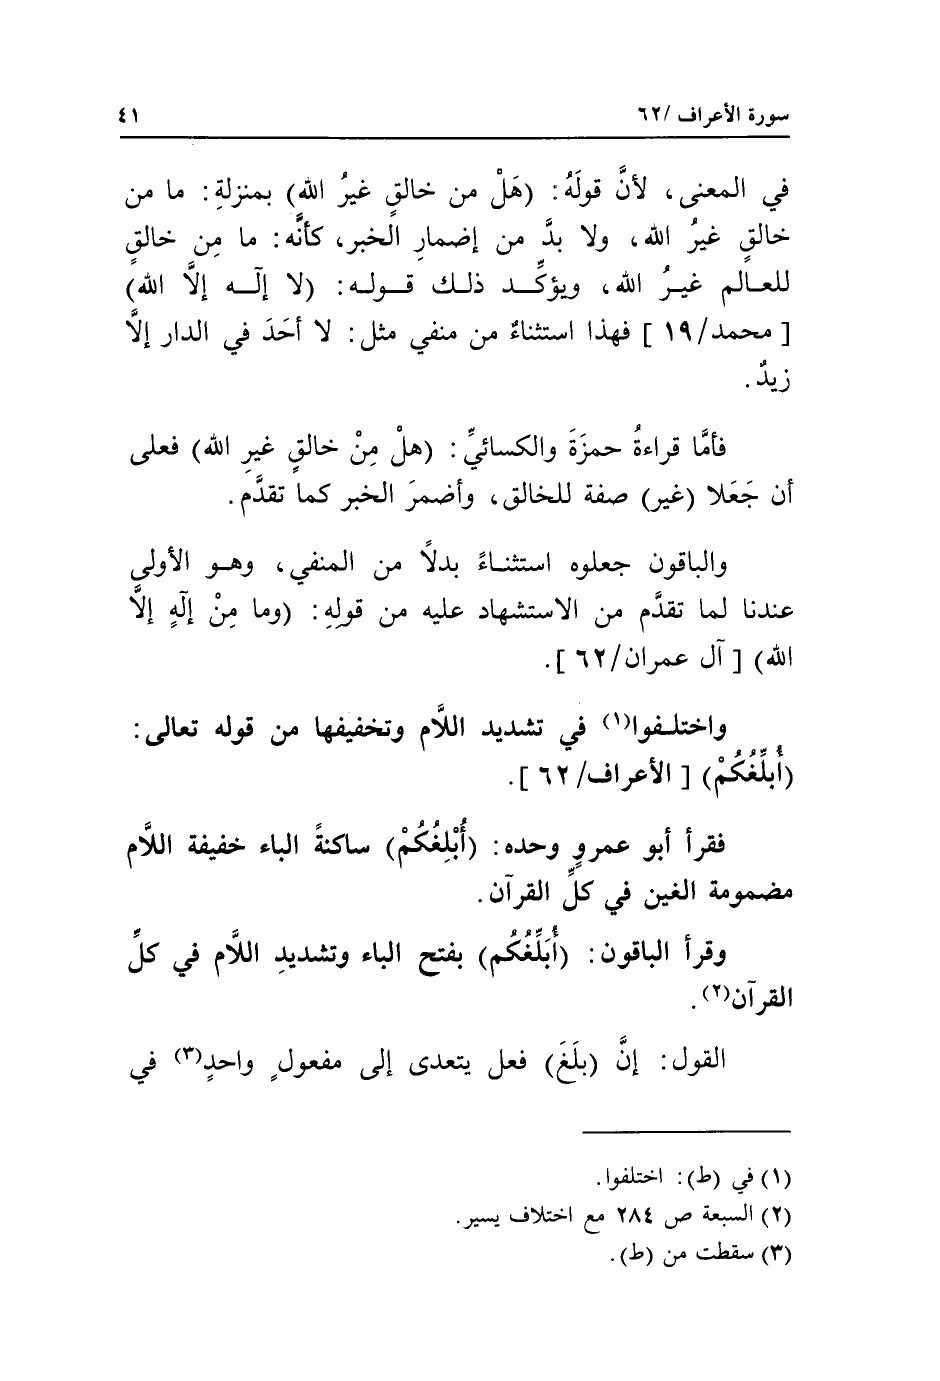 سورة الأعراف /٦٢
٤١
في المعنى، لأنَّ قولَهُ: (هَلْ من خالقٍ غيرُ اللهِ) بمنزلةِ: ما من
خالقٍ غيرُ الله، ولا بدَّ من إضمارِ الخبر، كأنَّه: ما مِن خالقٍ
للعـالم غيـرُ الله، ويؤكِّـد ذلـك قـولـه: (لا إلٓـه إلَّا الله)
[ محمد/١٩ ] فهذا استثناءٌ من منفي مثل: لا أحَدَ في الدار إلَّا
زيدٌ.
فأمَّا قراءةُ حمزَةَ والكسائيِّ: (هلْ مِنْ خالقٍ غيرِ الله) فعلى
أن جَعَلا (غير) صفة للخالق، وأضمرَ الخبر كما تقدَّم.
والباقون جعلوه استثنـاءً بدلًا من المنفي، وهـو الأولى
عندنا لما تقدَّم من الاستشهاد عليه من قولِهِ: (وما مِنْ إلٓهٍ إلَّا
الله) [ آل عمران/٦٢ ].
واختلـفوا(١) في تشديد اللَّام وتخفيفها من قوله تعالى:
(أُبلِّغُكُمْ) [ الأعراف/ ٦٢ ].
فقرأ أبو عمروٍ وحده: (أُبْلِغُكُمْ) ساكنةً الباء خفيفة اللَّام
مضمومة الغين في كلِّ القرآن.
وقرأ الباقون: (أُبَلِّغُكُم) بفتح الباء وتشديدِ اللَّام في كلِّ
القرآن(٢).
القول: إنَّ (بلَغَ) فعل يتعدى إلى مفعولٍ واحدٍ(٣) في
(١) في (ط): اختلفوا.
(٢) السبعة ص ٢٨٤ مع اختلاف يسير.
(٣) سقطت من (ط).